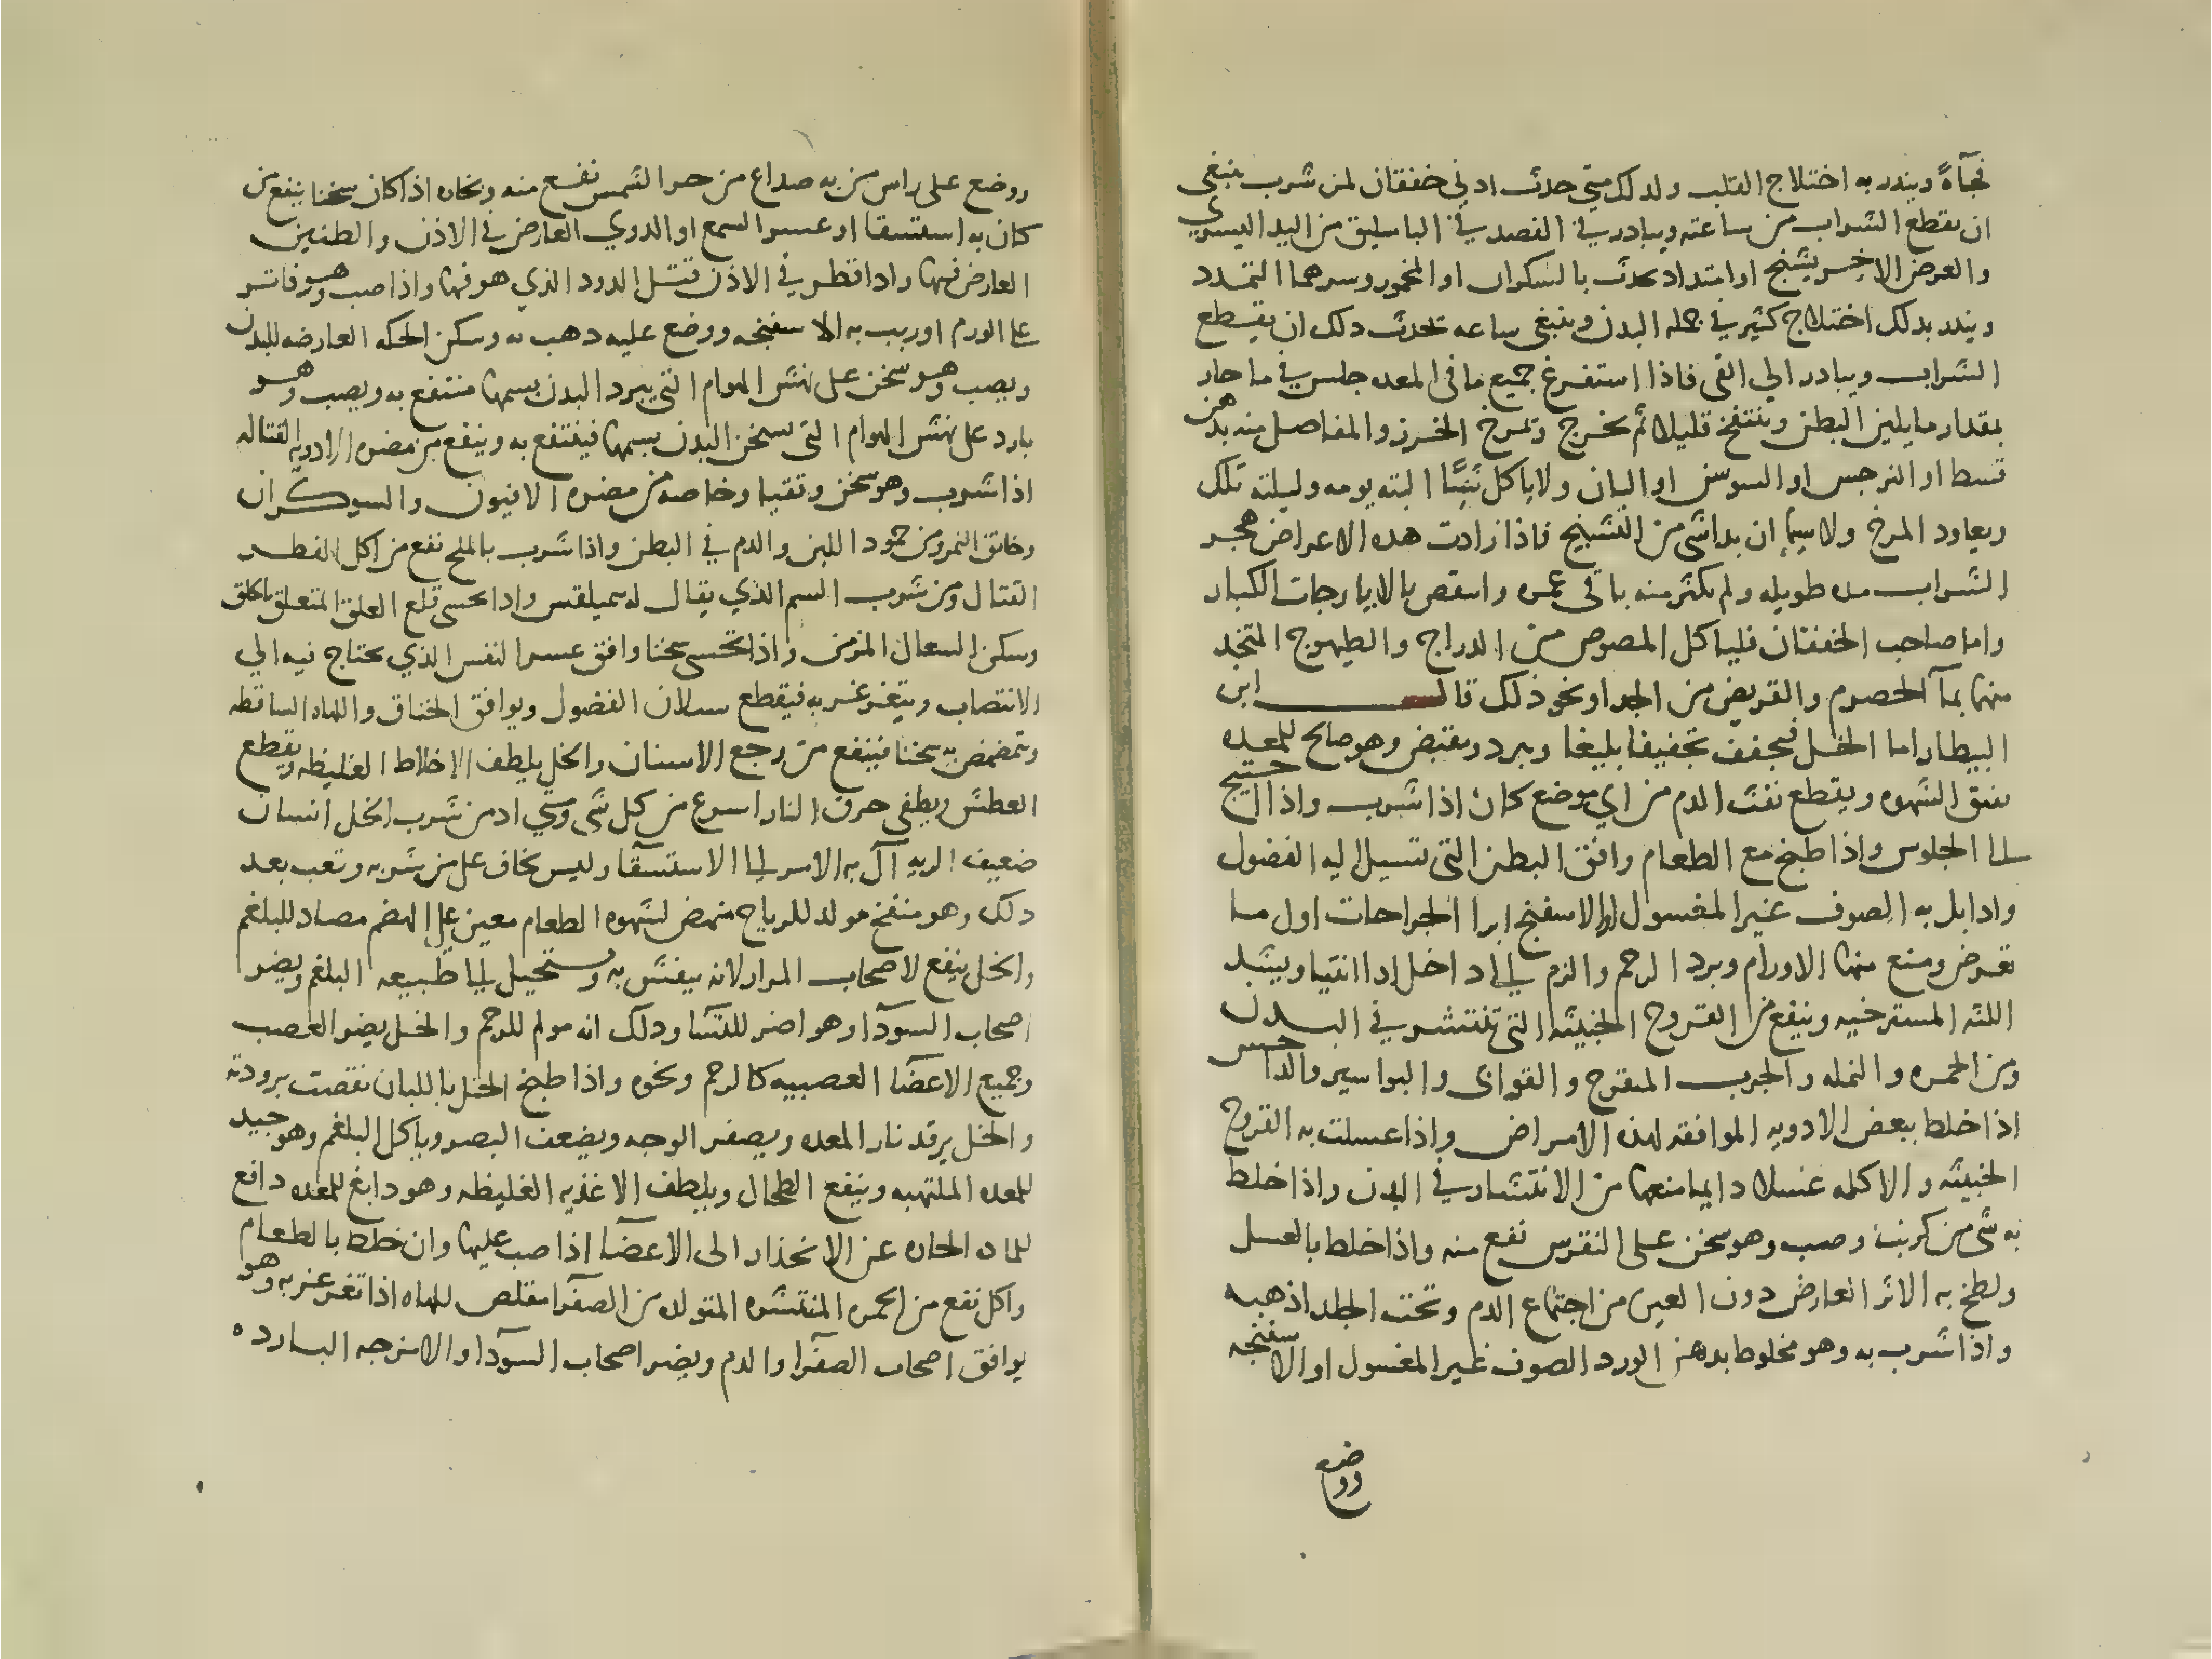 فجآةً وينذر به اختلاج القلب ولدلك متي حدث ادني خفقان لمن شرب ينبغي
ان يقطع الشراب من ساعته ويبادر في الفصد في الباسليق من اليد اليسري
والعرض الاخر يشنج او امتداد يحدث بالسكران او المخمور وسرهما التمدد
وينذر بدلك اختلاج كثير في جمله البدن وينبغي ساعه تحدث دلك ان يقطع
الشراب ويبادر الي القي فاذا استفرغ جميع ما في المعده جلس في ما حار
بمقدار ما يلين البطن وينتفخ قليلا ثم يخرج وتمرخ الخرز والمفاصل منه بدهن
قسط او النرجس او السوسن او البان ولا ياكل شيًا البته يومه وليلته تلك
ويعاود المرخ ولا سيما ان بدا شي من التشنج فاذا زادت هده الاعراض هجر
الشراب مده طويله ولم يكثر منه باقي عمره واسقص بالايارجات الكبار
واما صاحب الخفقان فلياكل المصوص من الدراج والطيهوج المتخد
منها بمآ الحصرم والقريض من الجدا ونحو ذلك قال ابن
البيطار اما الخل فيجفف تجفيفا بليغا ويبرد ويقبض وهو صالح للمعده
يفتق الشهوه ويقطع نفث الدم من اي موضع كان اذا شرب واذا احتيج
الجلوس واذا طبخ مع الطعام وافق البطن التي تسيل اليه الفضول
وادا بل به الصوف غير المغسول او الاسفنج ابرا الجراحات اول ما
تعرض ومنع منها الاورام وبرد الرحم والزم الي داخل اذا انتيا ويشد
اللثه المسترخيه وينفع من القروح الخبيثه التي تنتشر في البدن
ومن الحمره والنمله والجرب المتقرح والقوابي والبواسير والداحس
اذا خلط ببعض الادويه الموافقه لهذه الامراض واذا غسلت به القروح
الخبيثه والاكله غسلا دايما منعها من الانتشار في البدن واذا خلط
به شي من كربت وصب وهو سخن على النقرس نفع منه واذا خلط بالعسل
ولطخ به الاثر العارض دون العين من اجتماع الدم وتحت الجلد اذهبه
واذا شرب به وهو مخلوط بدهن الورد الصوف غير المغسول او الاسفنجه
ووضع
ووضع على راس من به صداع من حر الشمس نفع منه وبخاره اذا كان سخنا ينفع من
كان به استسقا او عسر السمع او الدوي العارض في الاذن والطنين
العارض فيها وادا قطر في الاذن قتل الدود الذي هو فيها واذا صب وهو فاتر
علي الورم او ربب به الاسفنجه ووضع عليه دهب به وسكن الحكه العارضه للبدن
ويصب وهو سخن على نهش الهوام التي يبرد البدن بسمها منتفع به ويصب وهو
بارد على نهش الهوام التي يسخن البدن بسمها فينتفع به وينفع من مضره الادويه القتاله
اذا شرب وهو سخن وتقيا وخاصه من مضره الافيون والسوكران
وخانق النمر ومن جمود اللبن والدم في البطن واذا شرب بالملح نفع من اكل الفطر
القتال ومن شرب السم الذي يقال له سميلقس وادا تحسي قلع العلق المتعلق بالحلق
وسكن السعال المزمن واذا تحسي سخنا وافق عسر النفس الذي يحتاج فيه الي
الانتصاب ويتغرغر به فيقطع سيلان الفضول ويوافق الخناق واللهاه الساقطه
ويتمضمض به سخنا فينفع من وجع الاسنان والخل يلطف الاخلاط الغليظه ويقطع
العطش ويطفي حرق النار اسرع من كل شي ومتي ادمن شرب الخل انسان
ضعيف الريه آل به الامر الي الاستسقا وليس يخاف على من شربه وتعب بعد
دلك وهو منفخ مولد للرياح منهض لشهوه الطعام معين علي الهضم مضاد للبلغم
والخل ينفع لاصحاب المرار لانه ينفش به ويستحيل الي طبيعه البلغم ويضر
اصحاب السودآ وهو اضر للنسا ودلك انه مولم للرحم والخل يضر العصب
وجميع الاعضا العصبيه كالرحم ونحوه واذا طبخ الخل باللبان نقصت برودته
والخل يرقد نار المعده ويصفر الوجه ويضعف البصر وياكل البلغم وهو جيد
للمعده الملتهبه وينفع الطحال ويلطف الاغذيه الغليظه وهو دابغ للمعده دافع
للماده الحاده عن الانحذار الى الاعضا اذا صب عليها وان خلط بالطعام
واكل نفع من الحمره المنتشره المتولده من الصفرا مقلص للهاه اذا تغرغر به وهو
يوافق اصحاب الصفرا والدم ويضر اصحاب السودآ والامزجه البارده